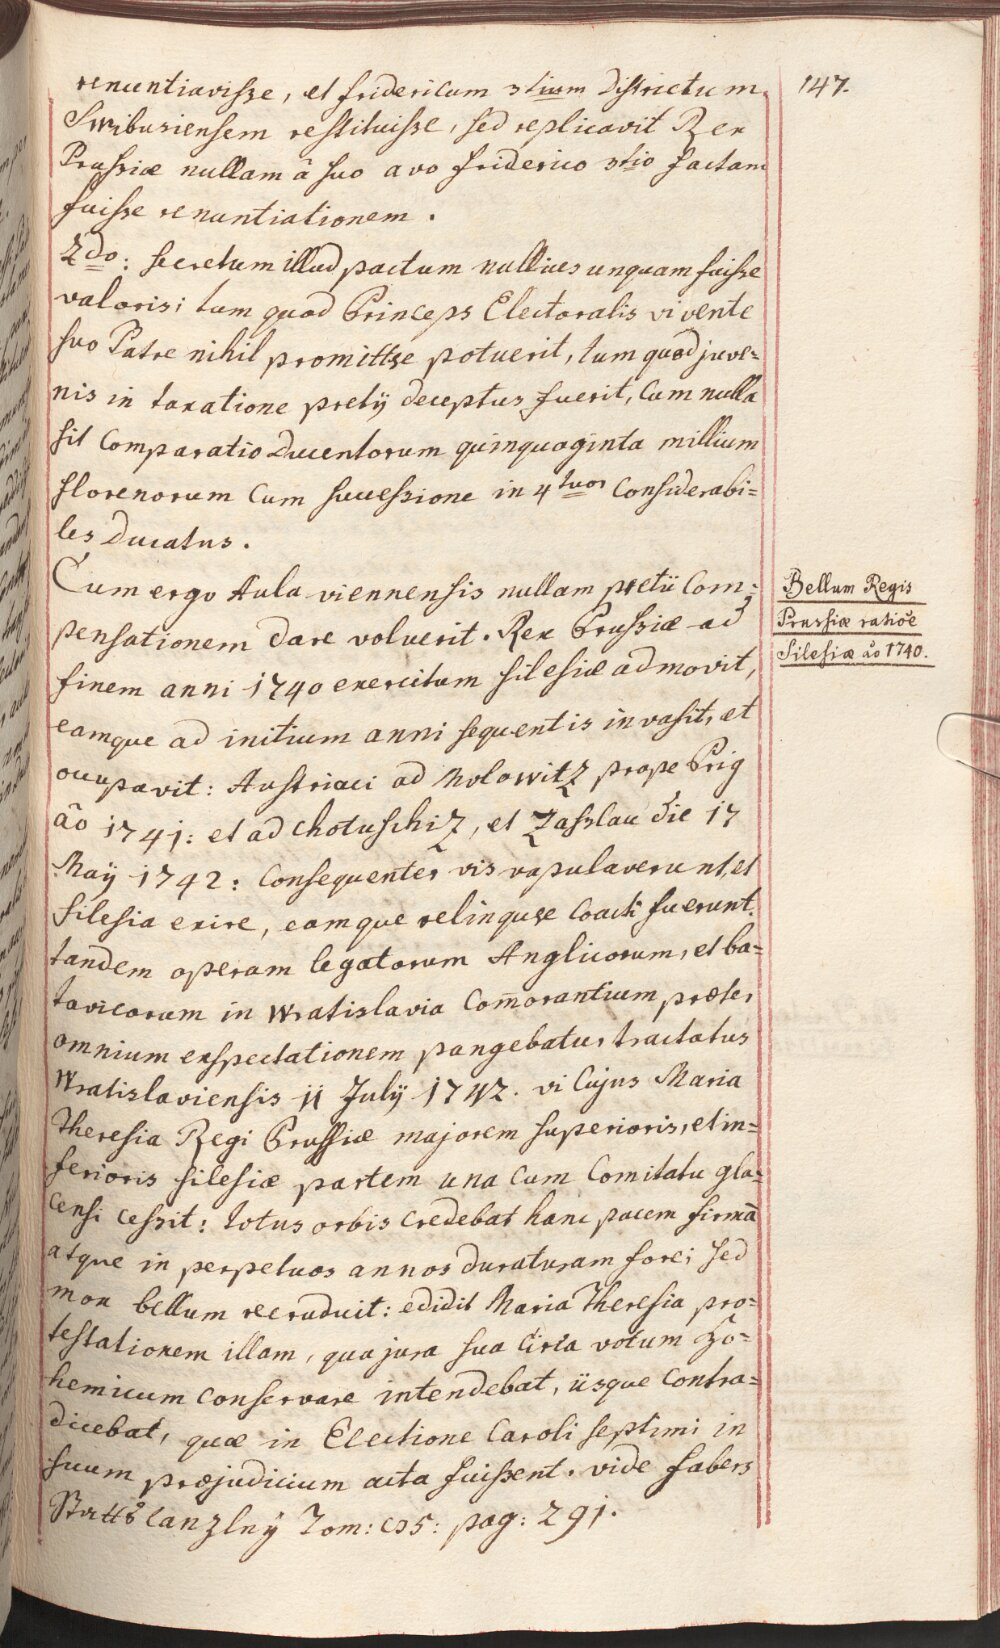 147.
renuntiavisse, et fridericum 3tium Districtum
Swibusiensem restituisse, sed replicavit Rex
Prussiæ nullam â suo avo friderico 3tio factam
fuisse renuntiationem.
2do: secretum illud pactum nullius unquam fuisse
valoris; tum quod Princeps Electoralis vivente
suo Patre nihil promittere potuerit, tum quod juve=
nis in taxatione pretij deceptus fuerit, Cum nulla
sit Comparatio Ducentorum quinquaginta millium
florenorum Cum successione in 4tuor Considerabi=
les Ducatus.
Cum ergo Aula viennensis nullam pretii Com=
pensationem dare voluerit. Rex Prussiæ ad
finem anni 1740 exercitum Silesiæ admovit,
eamque ad initium anni sequentis invasit, et
occupavit: Austriaci ad Molowitz prope Brig
ão 1741: et ad Chotuschiz, et Zasslau die 17
Maÿ 1742: Consequenter vis vapulaverunt, et
Silesia exire, eamque relinquere Coacti fuerunt.
tandem operam legatorum Anglicorum, et ba=
tavicorum in Wratislavia Com̃orantium præter
omnium exspectationem pangebatur tractatus
Wratislaviensis 11 Julÿ 1742. vi Cujus Maria
Theresia Regi Prussiæ majorem superioris, et in=
ferioris Silesiæ partem una Cum Comitatu gla=
censi cessit: totus orbis credebat hanc pacem firmã
atque in perpetuos annos duraturam fore; sed
mox bellum recruduit: edidit Maria Theresia pro=
testationem illam, qua jura sua Circa votum Bo=
hemicum conservare intendebat, iisque Contra=
dicebat, quæ in Electione Caroli septimi in
suum præjudicium acta fuissent. vide fabers
Statts Canzlnÿ Tom: 85: pag: 291.
Bellum Regis
Prussiæ ratiõe
Silesiæ ão 1740.